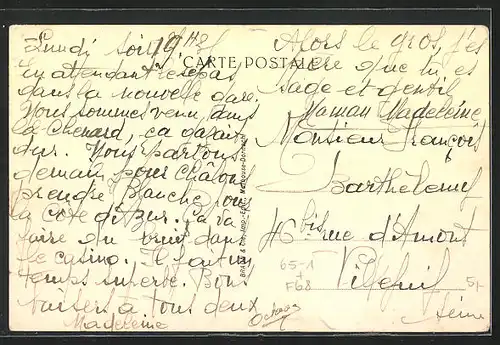 Lundi soir 19H
CARTE POSTALE
En attendant le repas
dans la nouvelle gare.
Nous sommes venu, dans
la Chenard, ca gazait
dur. Nous partons
demain pour Châlons
prendre Blanche pour
la côte d'Azur. Ca va
faire du bruit dans
le casino. Il fait un
temps superbe. Bons
baisers à tous deux
Madeleine
Alors le gros, j'es
père que tu es
sage et gentil
Maman Madeleine
Monsieur François
Barthélemy
46 bis rue d'Amont
65-1
+
F68
5/-
Seine